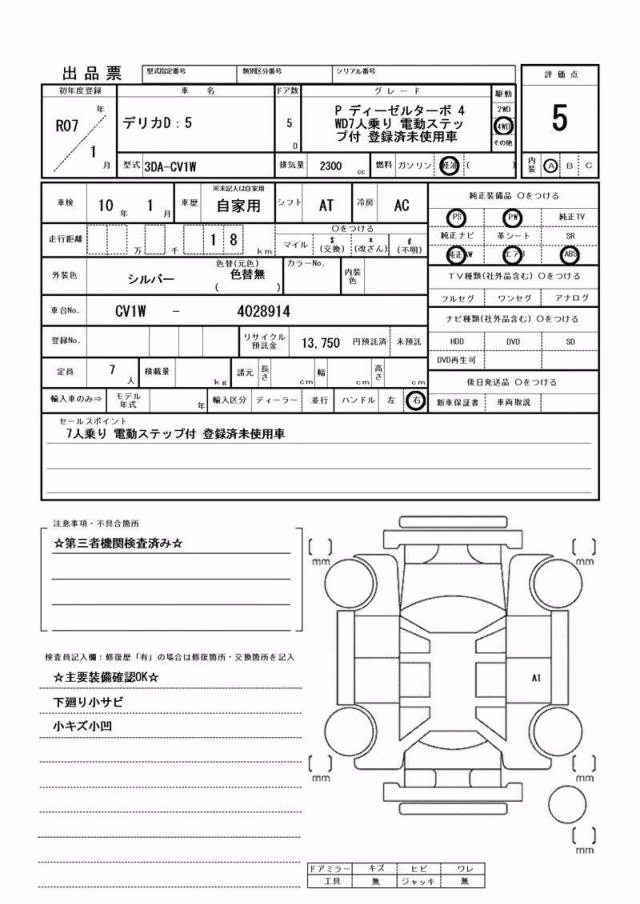 出品票 型式指定番号 類別区分番号 シリアル番号
評価点
初年度登録 車名 ドア数 グレード 駆動
R07 年 1 月
デリカD:5
5 D
P ディーゼルターボ 4
WD7人乗り 電動ステッ
プ付 登録済未使用車
2WD
4WD
その他
5
型式 3DA-CV1W 排気量 2300 cc 燃料 ガソリン 軽油 ( )
内装 A B C
車検 10 年 1 月 車歴 ※未記入は自家用 自家用 シフト AT 冷房 AC
純正装備品 〇をつける
PS PW 純正TV
純正ナビ 革シート SR
純正AW エアB ABS
走行距離 万 千 1 8 km
〇をつける
マイル $(交換) x(改ざん) #(不明)
外装色 シルバー 色替(元色) 色替無 ( ) カラーNo. 内装色
TV種類(社外品含む) 〇をつける
フルセグ ワンセグ アナログ
車台No. CV1W - 4028914
ナビ種類(社外品含む) 〇をつける
HDD DVD SD
DVD再生可
登録No. リサイクル預託金 13,750 円預託済 未預託
定員 7 人 積載量 kg 諸元 長さ cm 幅 cm 高さ cm
後日発送品 〇をつける
新車保証書 車両取説
輸入車のみ⇒ モデル年式 年 輸入区分 ディーラー 並行 ハンドル 左 右
セールスポイント
7人乗り 電動ステップ付 登録済未使用車
注意事項・不具合箇所
☆第三者機関検査済み☆
検査員記入欄:修復歴「有」の場合は修復箇所・交換箇所を記入
☆主要装備確認OK☆
下廻り小サビ
小キズ小凹
mm
mm
A1
mm
mm
mm
ドアミラー キズ ヒビ ワレ
工具 無 ジャッキ 無